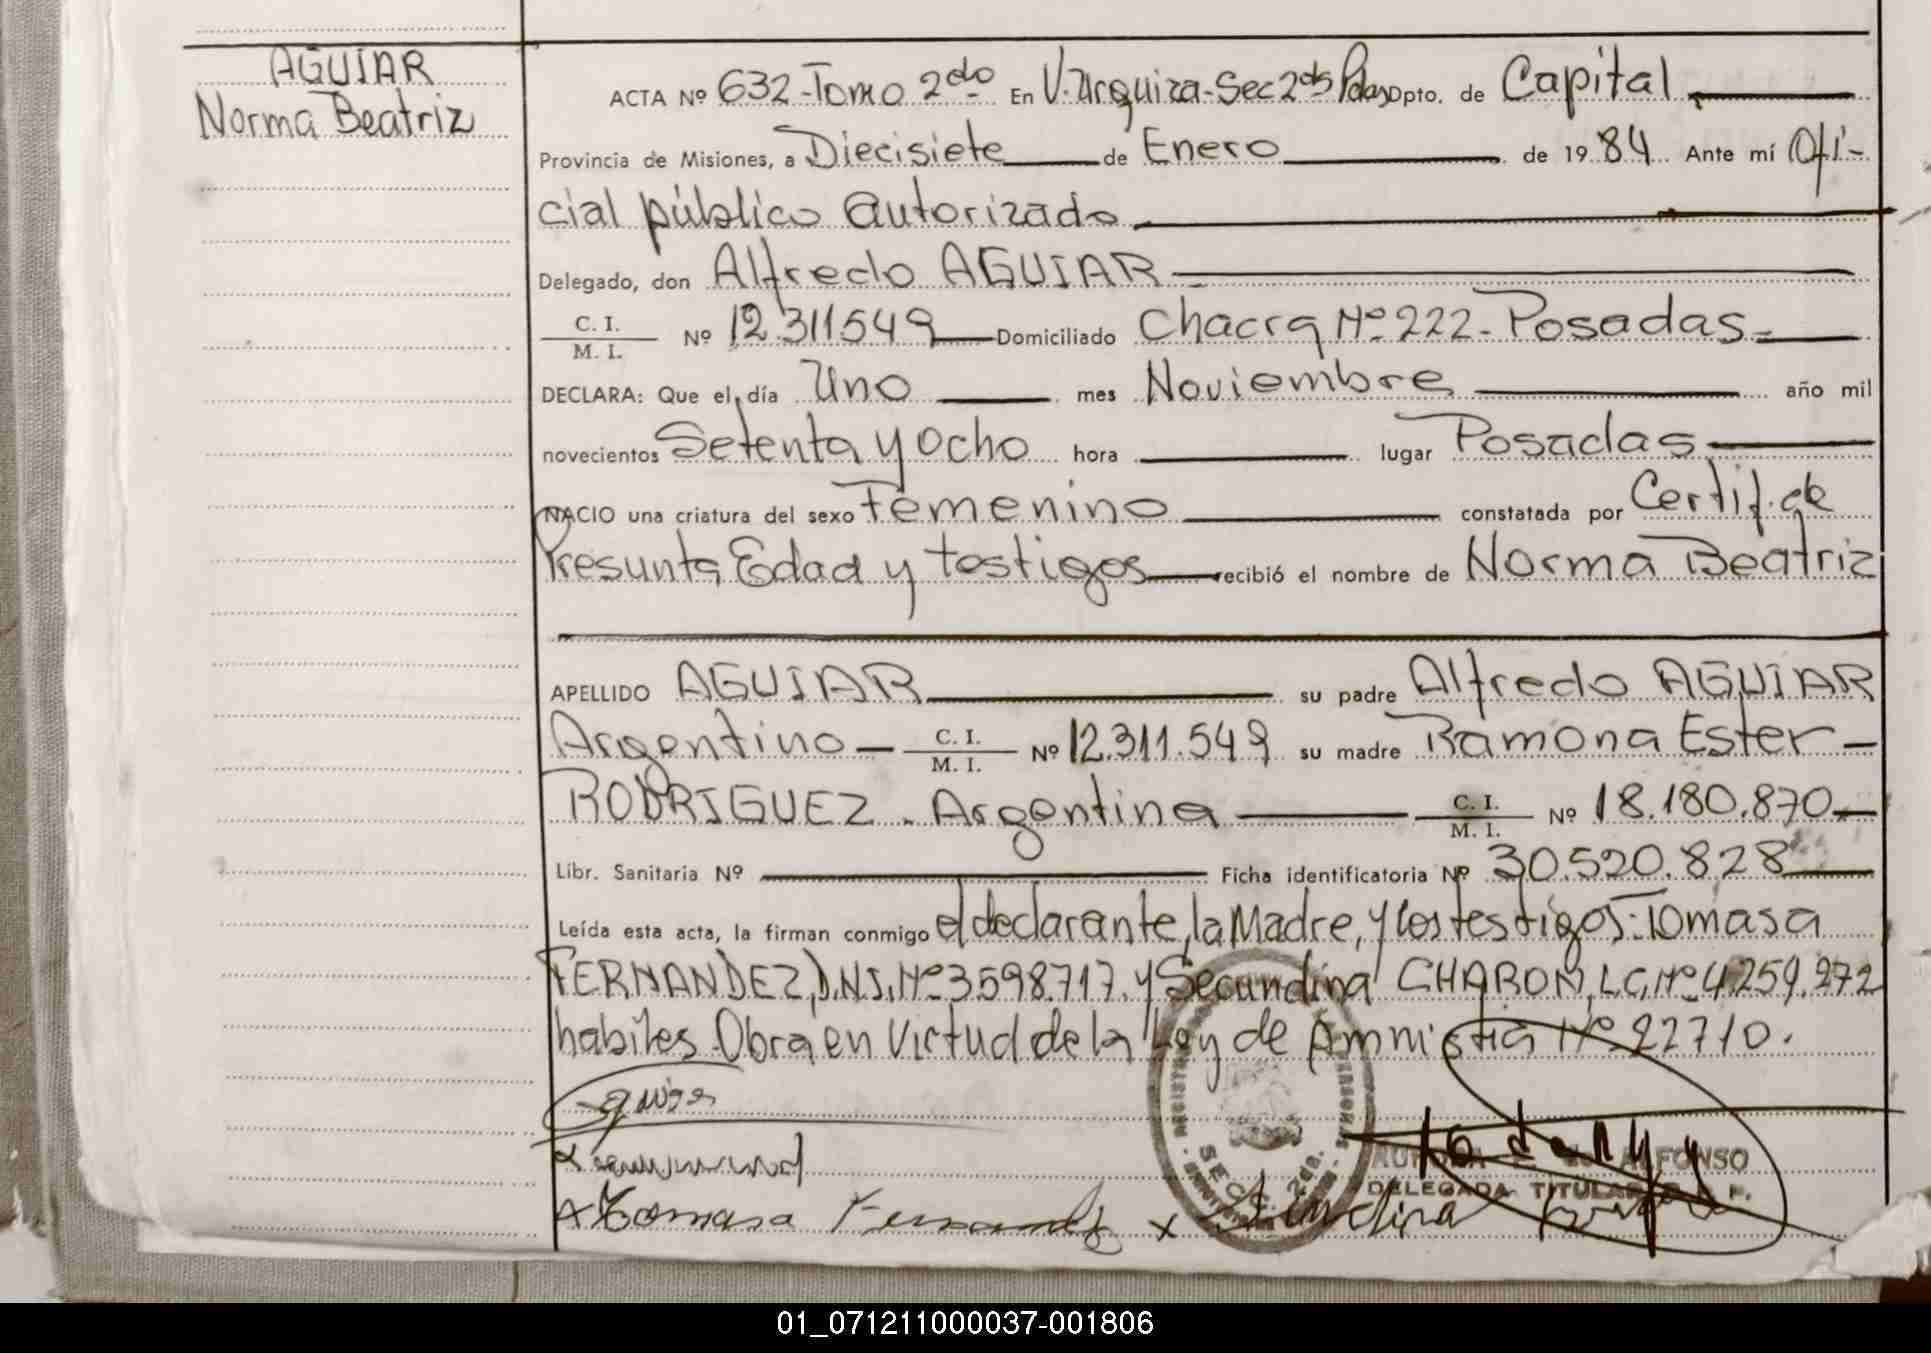 AGUIAR
Norma Beatriz
ACTA Nº 632-Tomo 2do En V. Urquiza-Sec 2da Pdas Dpto. de Capital
Provincia de Misiones, a Diecisiete de Enero de 19 84 Ante mí Ofi-
cial público autorizado
Delegado, don Alfredo AGUIAR
C. I.
M. I. Nº 12.311.549 Domiciliado Chacra Nº 222-Posadas
DECLARA: Que el día Uno mes Noviembre año mil
novecientos Setenta y Ocho hora lugar Posadas
NACIO una criatura del sexo Femenino constatada por Certif. de
Presunta Edad y testigos recibió el nombre de Norma Beatriz
APELLIDO AGUIAR su padre Alfredo AGUIAR
Argentino C. I.
M. I. Nº 12.311.549 su madre Ramona Ester
RODRIGUEZ. Argentina C. I.
M. I. Nº 18.180.870
Libr. Sanitaria Nº Ficha identificatoria Nº 30.520.828
Leída esta acta, la firman conmigo el declarante, la Madre, y los testigos: Tomasa
FERNANDEZ, D.N.I. Nº 3598.717. y Secundina CHARON, L.C. Nº 4.259.272
habiles. Obra en Virtud de la Ley de Amnistia Nº 22710.
SECC. 2da.
ALFONSO
DELEGADA TITULAR
Tomasa Fernandez x
01_071211000037-001806